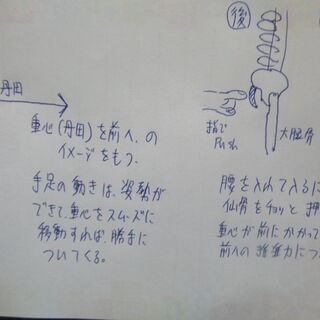 丹田
重心(丹田)を前へ、の
イメージをもつ。
手足の動きは、姿勢が
できて、重心をスムーズに
移動すれば、勝手に
ついてくる。
後
指で
Push
大腿骨
腰を入れて入るに
仙骨をチョッと押
重心が前にかかって
前への推進力につ